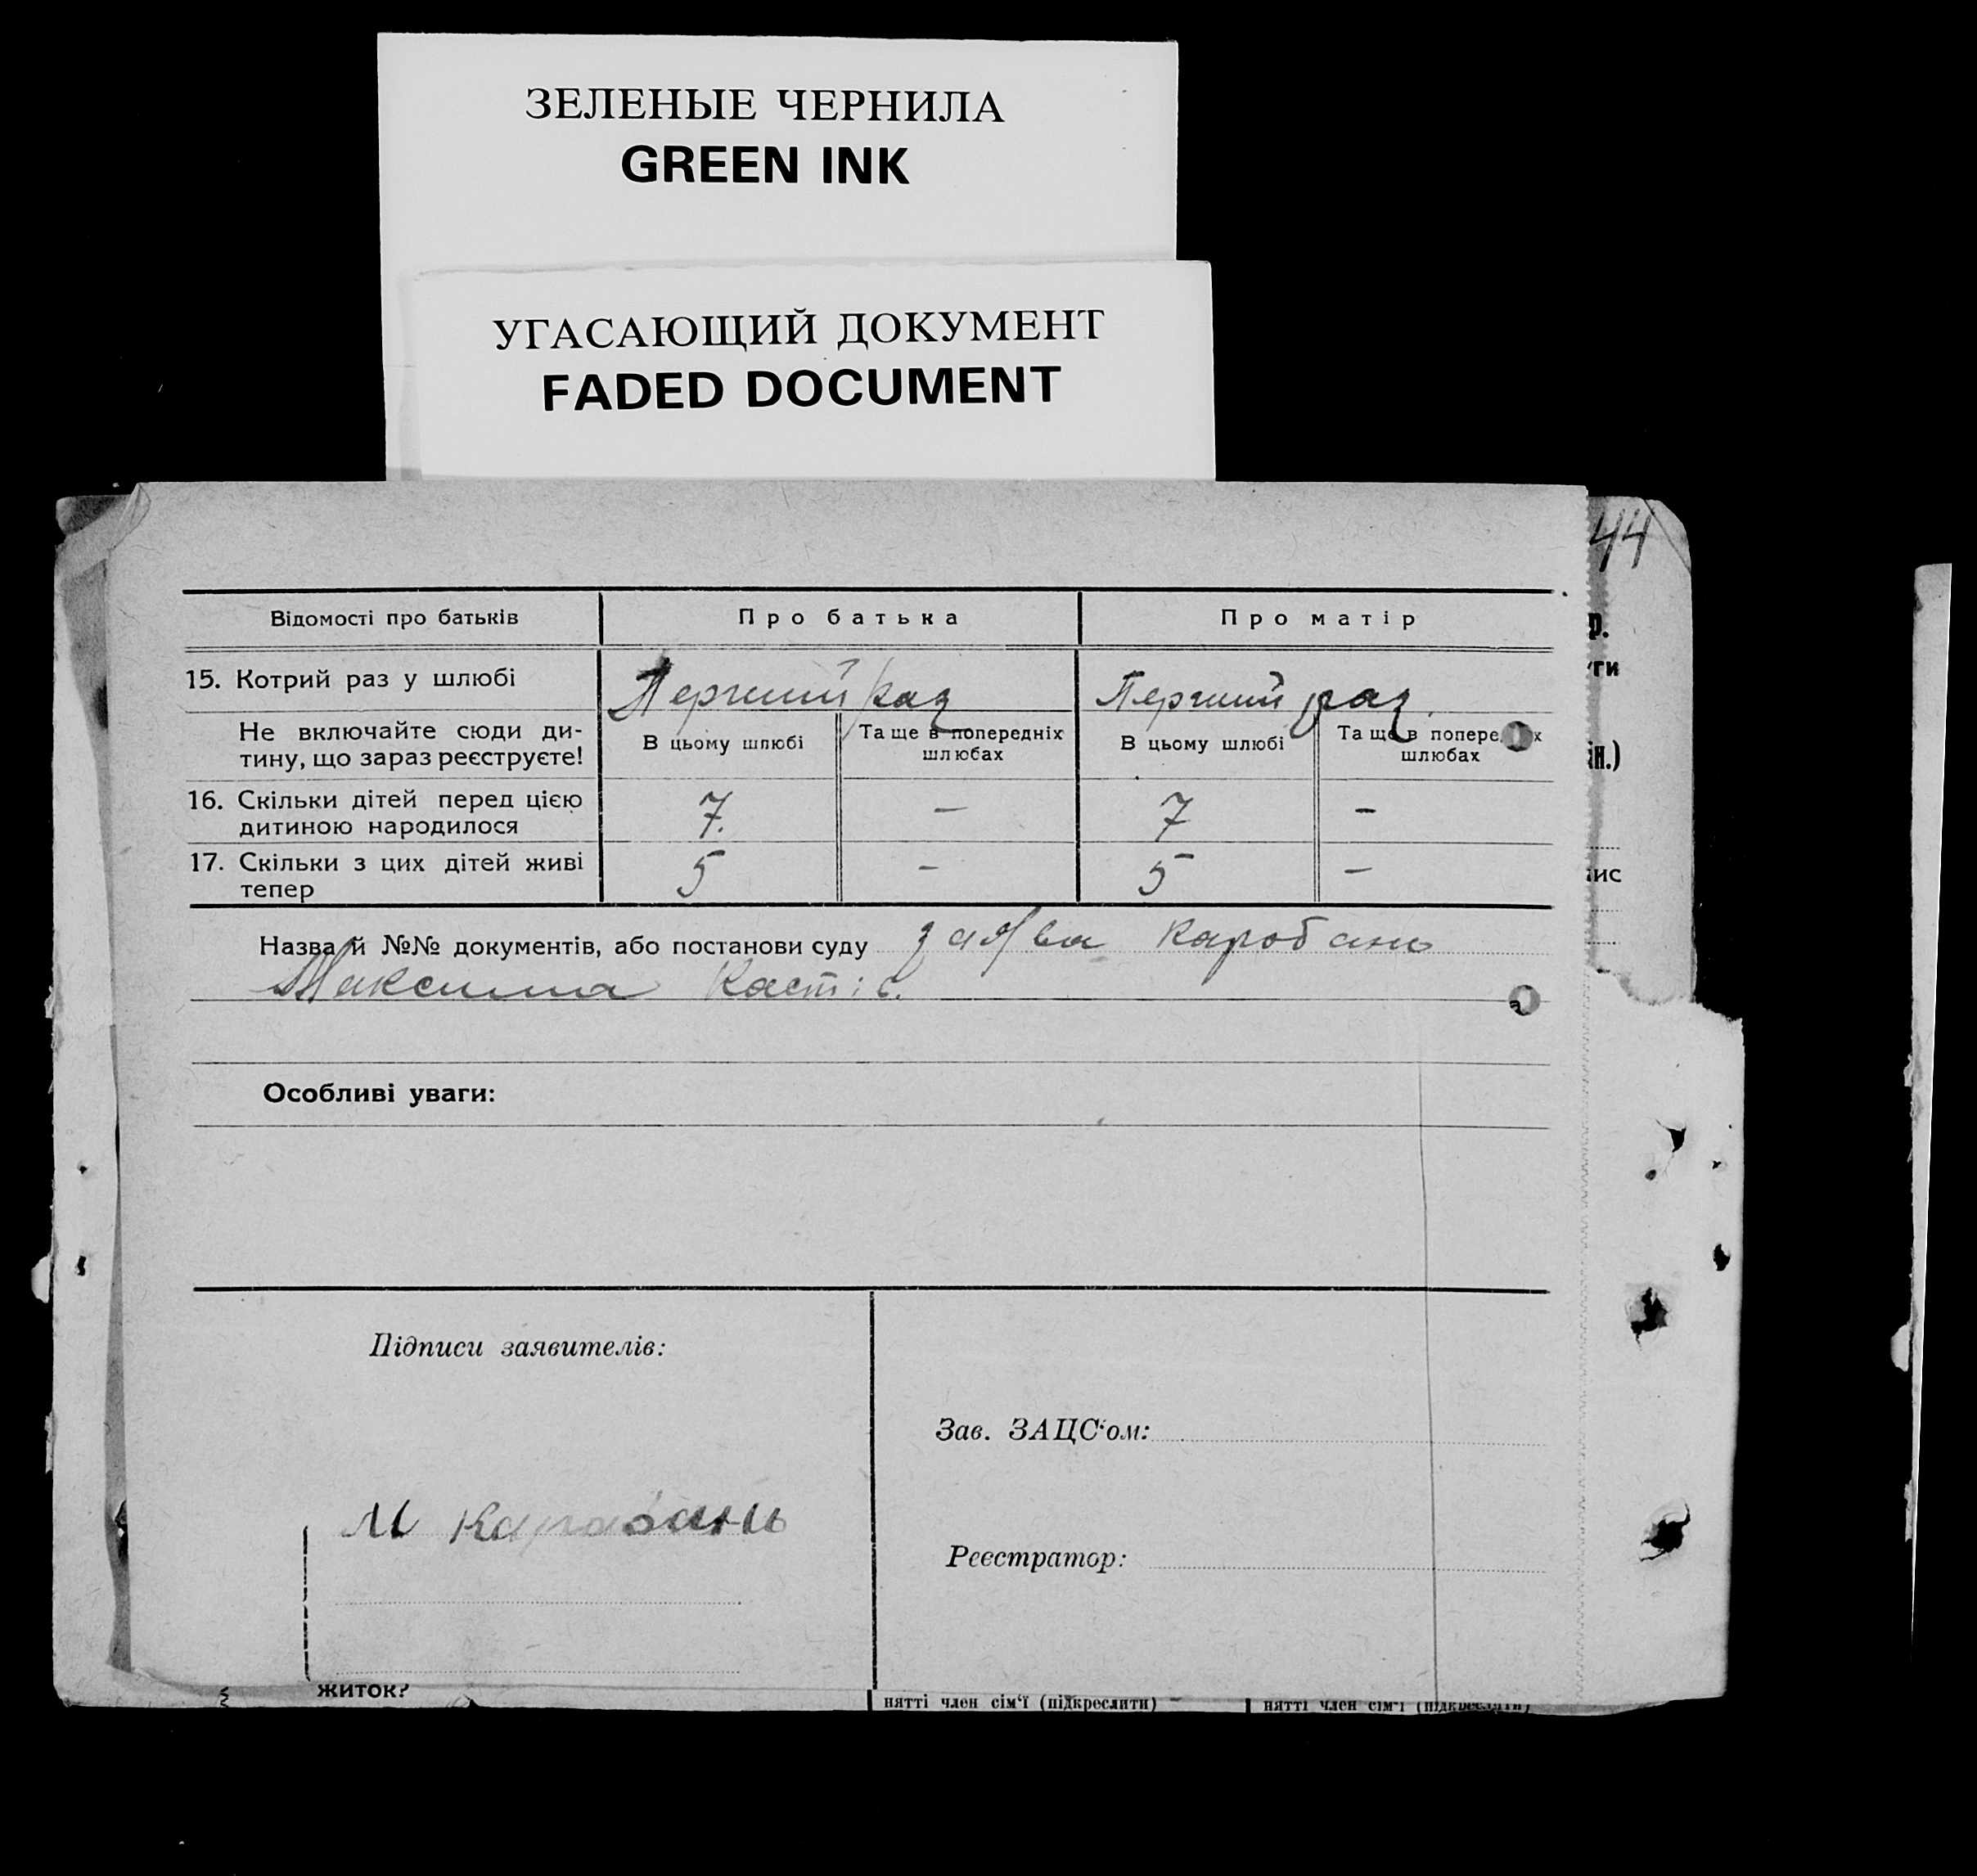 ЗЕЛЕНЫЕ ЧЕРНИЛА
GREEN INK
УГАСАЮЩИЙ ДОКУМЕНТ
FADED DOCUMENT
44
Відомості про батьків Про батька Про матір
15. Котрий раз у шлюбі Перший раз Перший раз.
Не включайте сюди ди-
тину, що зараз реєструєте!
В цьому шлюбі
Та ще в попередніх
шлюбах
В цьому шлюбі
Та ще в
шлюбах
16. Скільки дітей перед цією
дитиною народилося
7. – 7 –
17. Скільки з цих дітей живі
тепер
5 – 5 –
Назва й №№ документів, або постанови суду заява Каробань
Максима Кастів.
Особливі уваги:
Підписи заявителів:
Зав. ЗАЦС‘ом:
М Карабань
Реєстратор:
житок?
нятті член сім‘ї (підкреслити)
нятті член сім‘ї (підкреслити)